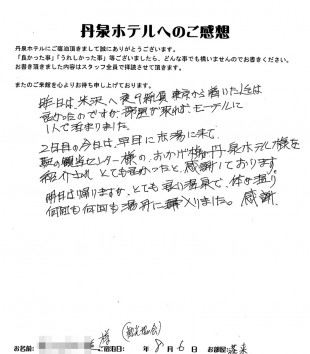 丹泉ホテルへのご感想
丹泉ホテルにご宿泊頂きまして誠にありがとうございます。
「良かった事」「うれしかった事」等ございましたら、どんな事でも構いませんのでお書きください。
お書き頂きました内容はスタッフ全員で拝読させて頂きます。
またのご来館を心よりお待ち申し上げております。
昨日は米沢へ夜 東京から着いた
のですが 部屋が取れず、モーテルに
1人で泊まりました。
2日目の今日は、早目に赤湯に来て、
駅の観光センター様の、おかげ様で丹泉ホテル様を
紹介され とても良かったと、感謝しております。
明日は帰りますが、とても良い温泉で、体が温り
何回も何回も湯舟に入りました。感謝
お名前: 様 (観光協会) ご宿泊日: 年 8 月 6 日 お部屋: 蓬来